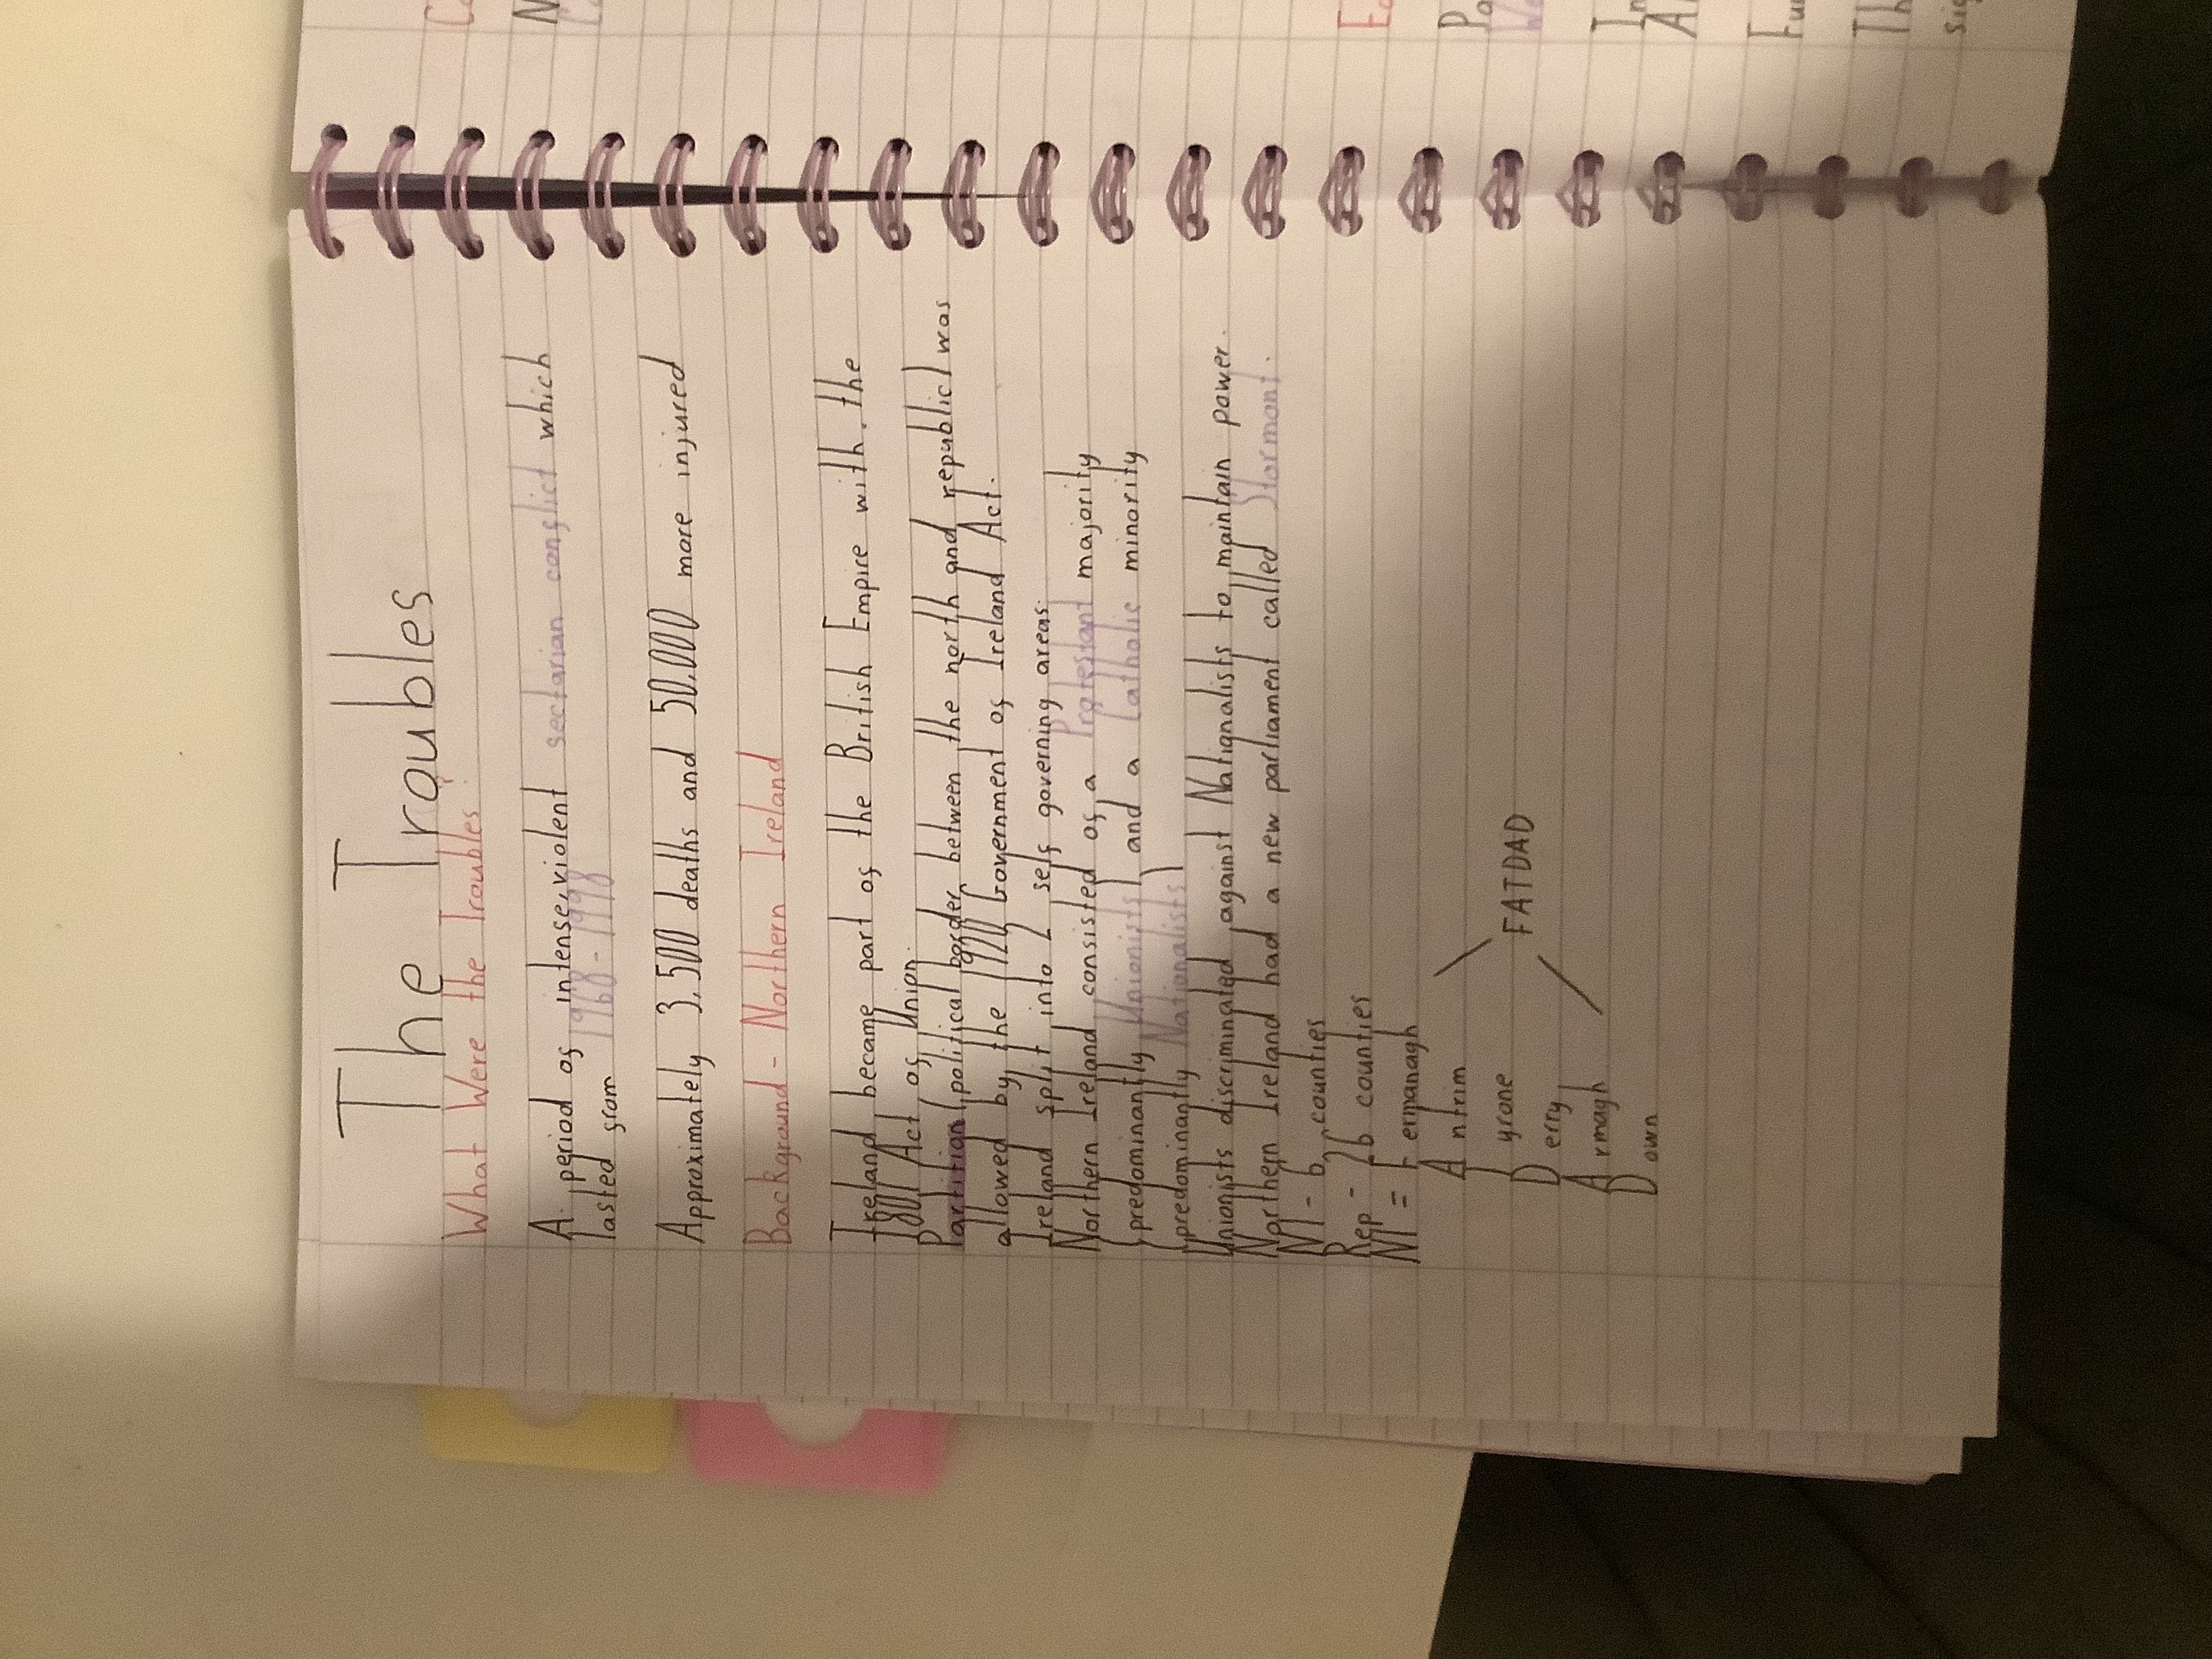 The Troubles
What Were the Troubles
A period of intense, violent sectarian conflict which
lasted from 1968-1998
Approximately 3,500 deaths and 50,000 more injured
Background - Northern Ireland
Ireland became part of the British Empire with the
1801 Act of Union.
Partition (political border between the north and republic) was
allowed by the 1920 Government of Ireland Act.
Ireland split into 2 self governing areas.
Northern Ireland consisted of a Protestant majority
(predominantly Unionists) and a Catholic minority
(predominantly Nationalists)
Unionists discriminated against Nationalists to maintain power.
Northern Ireland had a new parliament called Stormont.
NI - 6 counties
Rep - 26 counties
NI = Fermanagh
Antrim
Tyrone
FATDAD
Derry
Armagh
Down